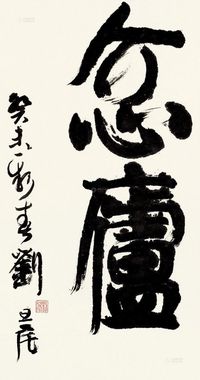 念廬
癸未新春劉旦宅